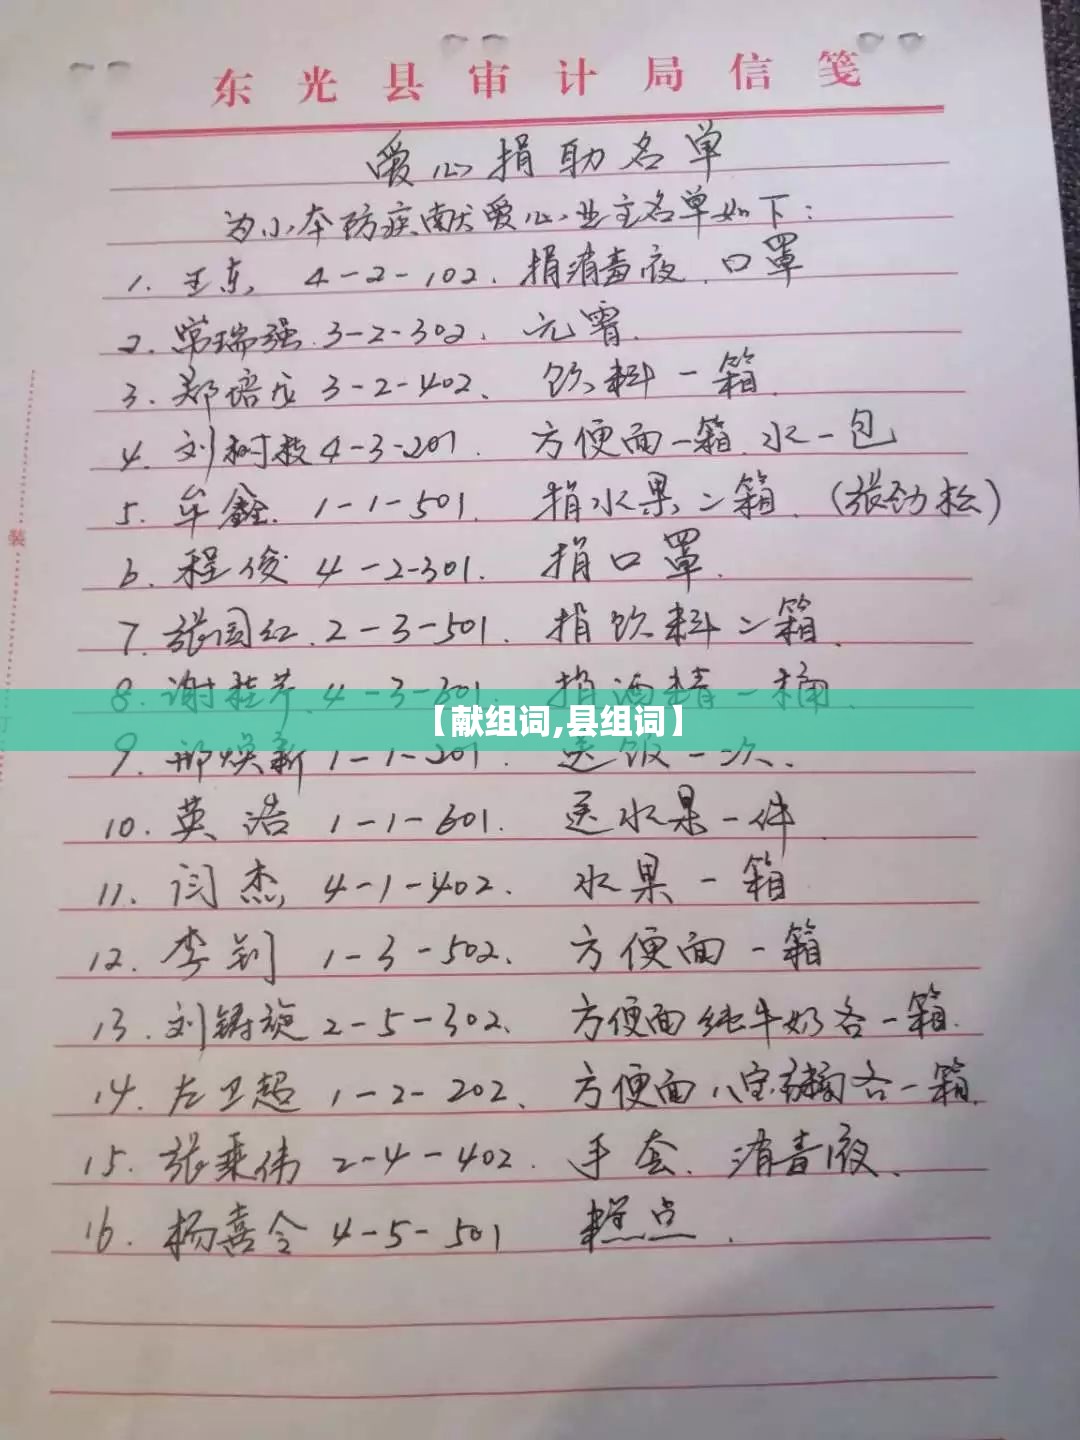 东光县审计局信笺
爱心捐助名单
为小区防疫献爱心业主名单如下：
1. 王东, 4-2-102. 捐消毒液.口罩
2. 常瑞强.3-2-302. 元霄.
3. 郑培 3-2-402、饮料一箱.
4. 刘树枝 4-3-201. 方便面一箱.水一包
5. 牟鑫. 1-1-501. 捐水果二箱.（张劲松）
6. 程俊 4-2-301. 捐口罩.
7. 张国红.2-3-501. 捐饮料二箱.
8. 谢桂芹.4-3-301. 捐酒精一桶.
【献组词,县组词】
9. 邢焕新 1-1-201. 送饭一次.
10. 英浩 1-1-601. 送水果一件.
11. 闫杰, 4-1-402. 水果一箱
12. 李钊 1-3-502、方便面一箱
13. 刘旋 2-5-302、方便面纯牛奶各一箱.
14. 左卫超 1-2-202、方便面八宝粥各一箱.
15. 张秉伟 2-4-402. 手套.消毒液、
16. 杨喜令 4-5-501 糕点.
装